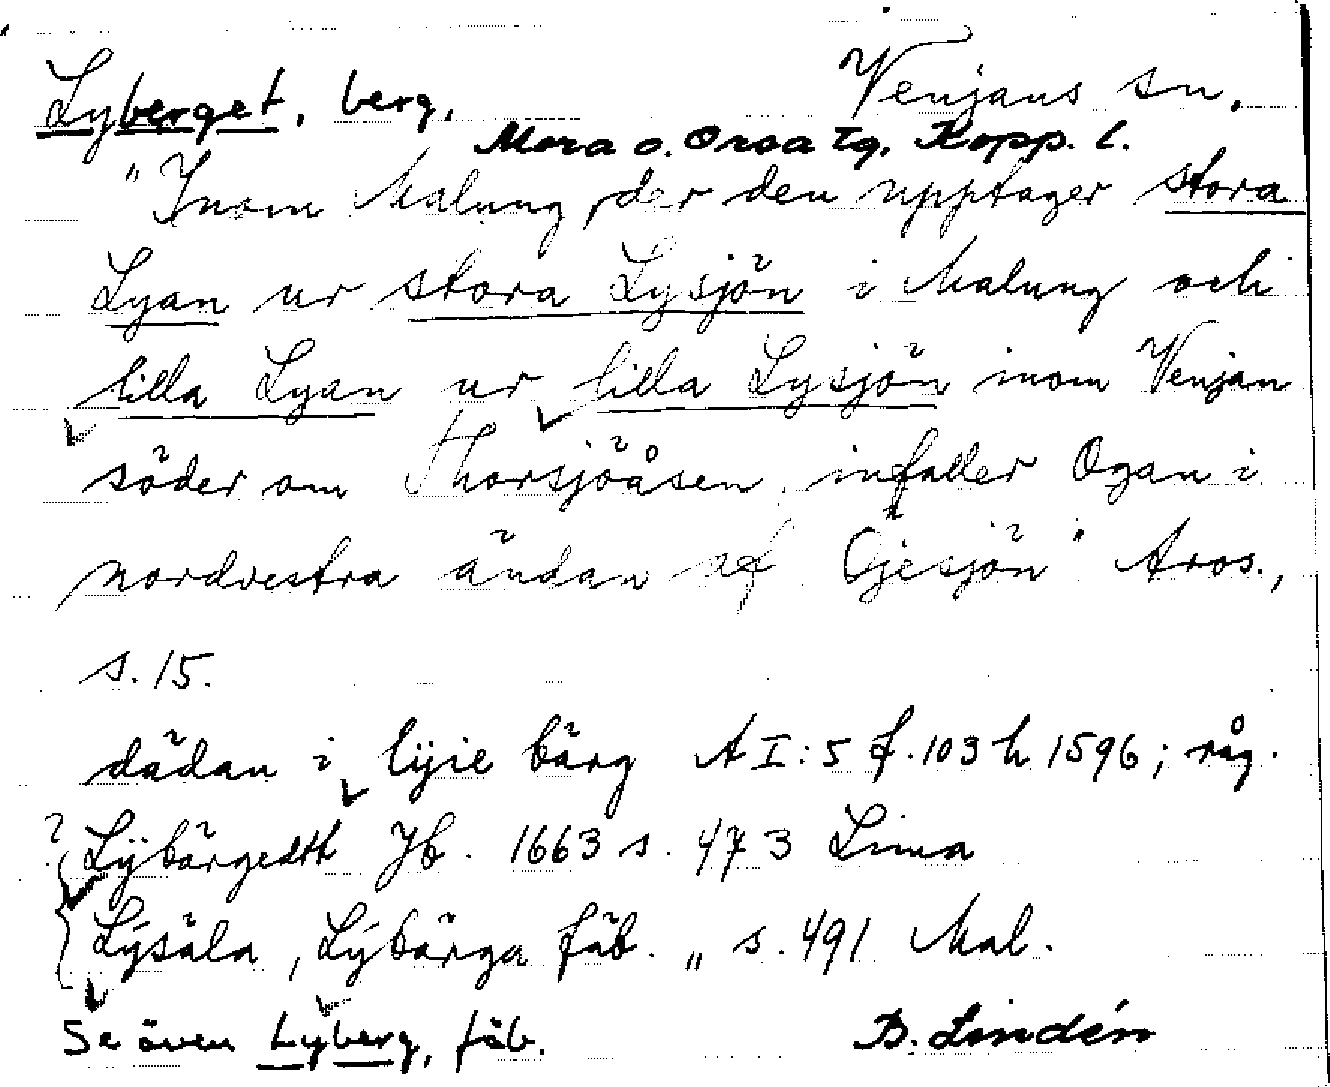 Lyberget, berg, Venjans sn,
Mora o. Orsa tg, Kopp. l.
"Inom Malung, der den upptager stora
Lyan ur stora Lysjön i Malung och
lilla Lyan ur lilla Lysjön inom Venjan
söder om Thorsjöåsen, infaller Ogan i
nordvestra ändan af Öjesjön" Aros.,
s. 15.
dädan i lijie bärg A I:5 f. 103 h 1596; råg.
? Lÿbärgedtt Jb. 1663 s. 473 Lima
Lýsäla, Lýbärga fäb. „ s. 491 Mal.
Se även Lyberg, fäb. B. Lindén